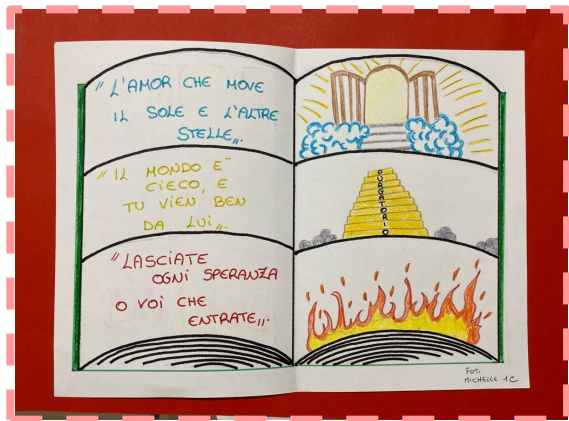 "L'AMOR CHE MOVE
IL SOLE E L'ALTRE
STELLE„.
"IL MONDO E‾
CIECO, E
TU VIEN BEN
DA LUI„.
"LASCIATE
OGNI SPERANZA
O VOI CHE
ENTRATE„.
PURGATORIO
FOTI
MICHELLE 1C